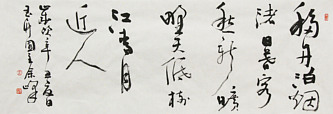 移舟泊烟
渚日暮客
愁新曠
野天低樹
江清月
近人